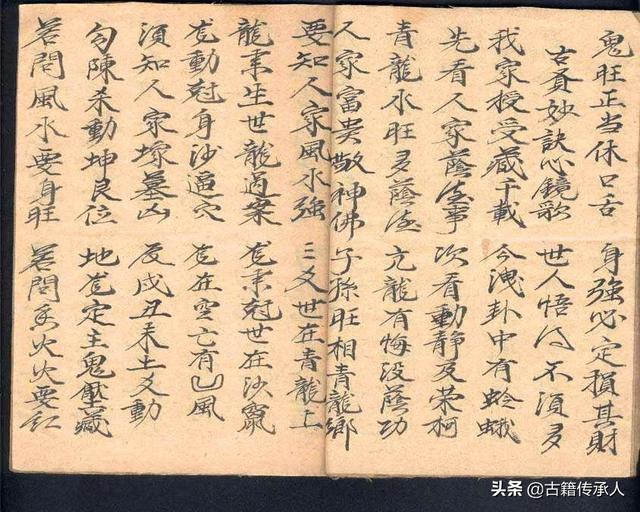 鬼旺正当休口舌 身強必定損其財
古賁妙訣心鏡歌 世人悟得不須多
我家授受藏千載 今洩卦中有蛤蛾
先看人家蔭德事 次看動静及荣柯
青龍水旺多蔭德 亢龍有悔没蔭功
人家富贵敬神佛 子孫旺相青龍鄉
要知人家風水強 三爻世在青龍上
龍来生世龍過案 虎来尅世在沙竄
虎動尅身沙逼穴 虎在空亡有凹風
須知人家塚墓凶 辰戌丑未土爻動
勾陳杀動坤艮位 地虎定主鬼壓藏
若問風水要身旺 若問香火火要紅
头条 @古籍传承人